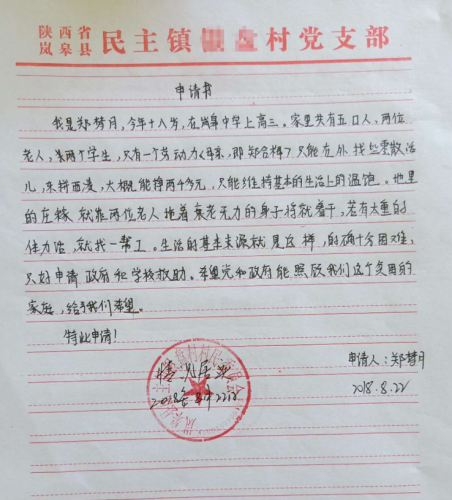 陕西省
岚皋县 民主镇 村党支部
申请书
我是郑梦月,今年十八岁,在岚皋中学上高三。家里共有五口人,两位
老人,某两个学生,只有一个劳动力(母亲,即郑合梅)只能在外找些零散活
儿,东拼西凑,大概能挣两千多元,只能维持基本的生活上的温饱。地里
的庄稼就靠两位老人拖着衰老无力的身子将就着干,若有太重的
体力活,就找人帮工。生活的基本来源就是这样,的确十分困难,
只好申请政府和学校救助。希望党和政府能照顾我们这个贫困的
家庭,给予我们希望。
特此申请!
情况属实
申请人:郑梦月
2018.8.22